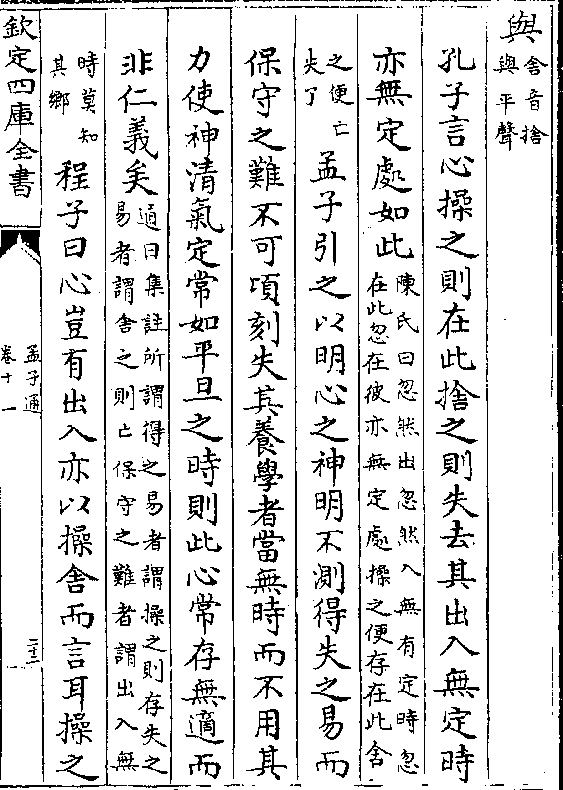 與
舍音捨
與平聲
孔子言心操之則在此捨之則失去其出入無定時
亦無定處如此
陳氏曰忽然出忽然入無有定時忽
在此忽在彼亦無定處操之便存在此舍
之便亡
失了
孟子引之以明心之神明不測得失之易而
保守之難不可頃刻失其養學者當無時而不用其
力使神清氣定常如平旦之時則此心常存無適而
非仁義矣
通曰集註所謂得之易者謂操之則存失之
易者謂舍之則亡保守之難者謂出入無
時莫知
其鄉
程子曰心豈有出入亦以操舍而言耳操之
欽定四庫全書
孟子通
卷十一